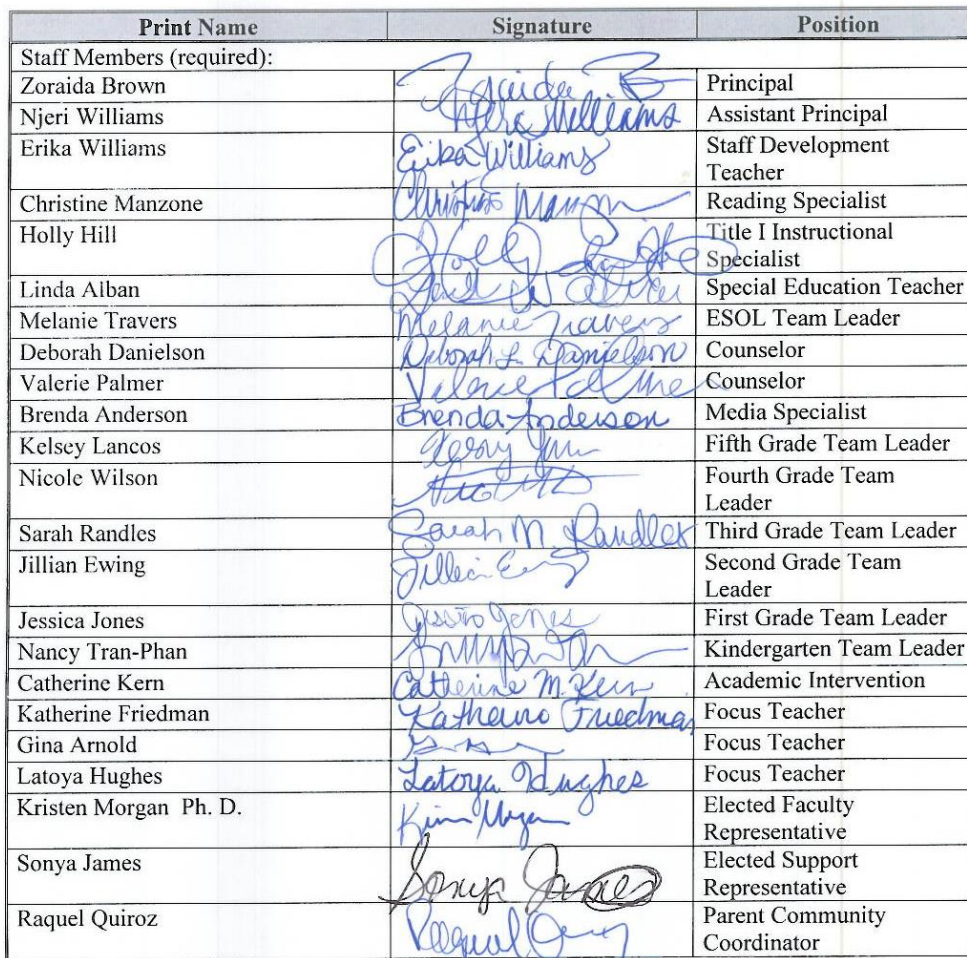 Print Name Signature Position
Staff Members (required):
Zoraida Brown Zoraida B Principal
Njeri Williams Njeri Williams Assistant Principal
Erika Williams Erika Williams Staff Development
Teacher
Christine Manzone Christine Reading Specialist
Holly Hill Holly Title I Instructional
Specialist
Linda Alban Special Education Teacher
Melanie Travers Melanie Travers ESOL Team Leader
Deborah Danielson Deborah L. Danielson Counselor
Valerie Palmer Valerie Palmer Counselor
Brenda Anderson Brenda Anderson Media Specialist
Kelsey Lancos Fifth Grade Team Leader
Nicole Wilson Fourth Grade Team
Leader
Sarah Randles Sarah M. Randles Third Grade Team Leader
Jillian Ewing Jillian Ewing Second Grade Team
Leader
Jessica Jones Jones First Grade Team Leader
Nancy Tran-Phan Kindergarten Team Leader
Catherine Kern Catherine M. Kern Academic Intervention
Katherine Friedman Katherine Friedman Focus Teacher
Gina Arnold Focus Teacher
Latoya Hughes Latoya Hughes Focus Teacher
Kristen Morgan Ph. D. Morgan Elected Faculty
Representative
Sonya James Sonya James Elected Support
Representative
Raquel Quiroz Raquel Parent Community
Coordinator